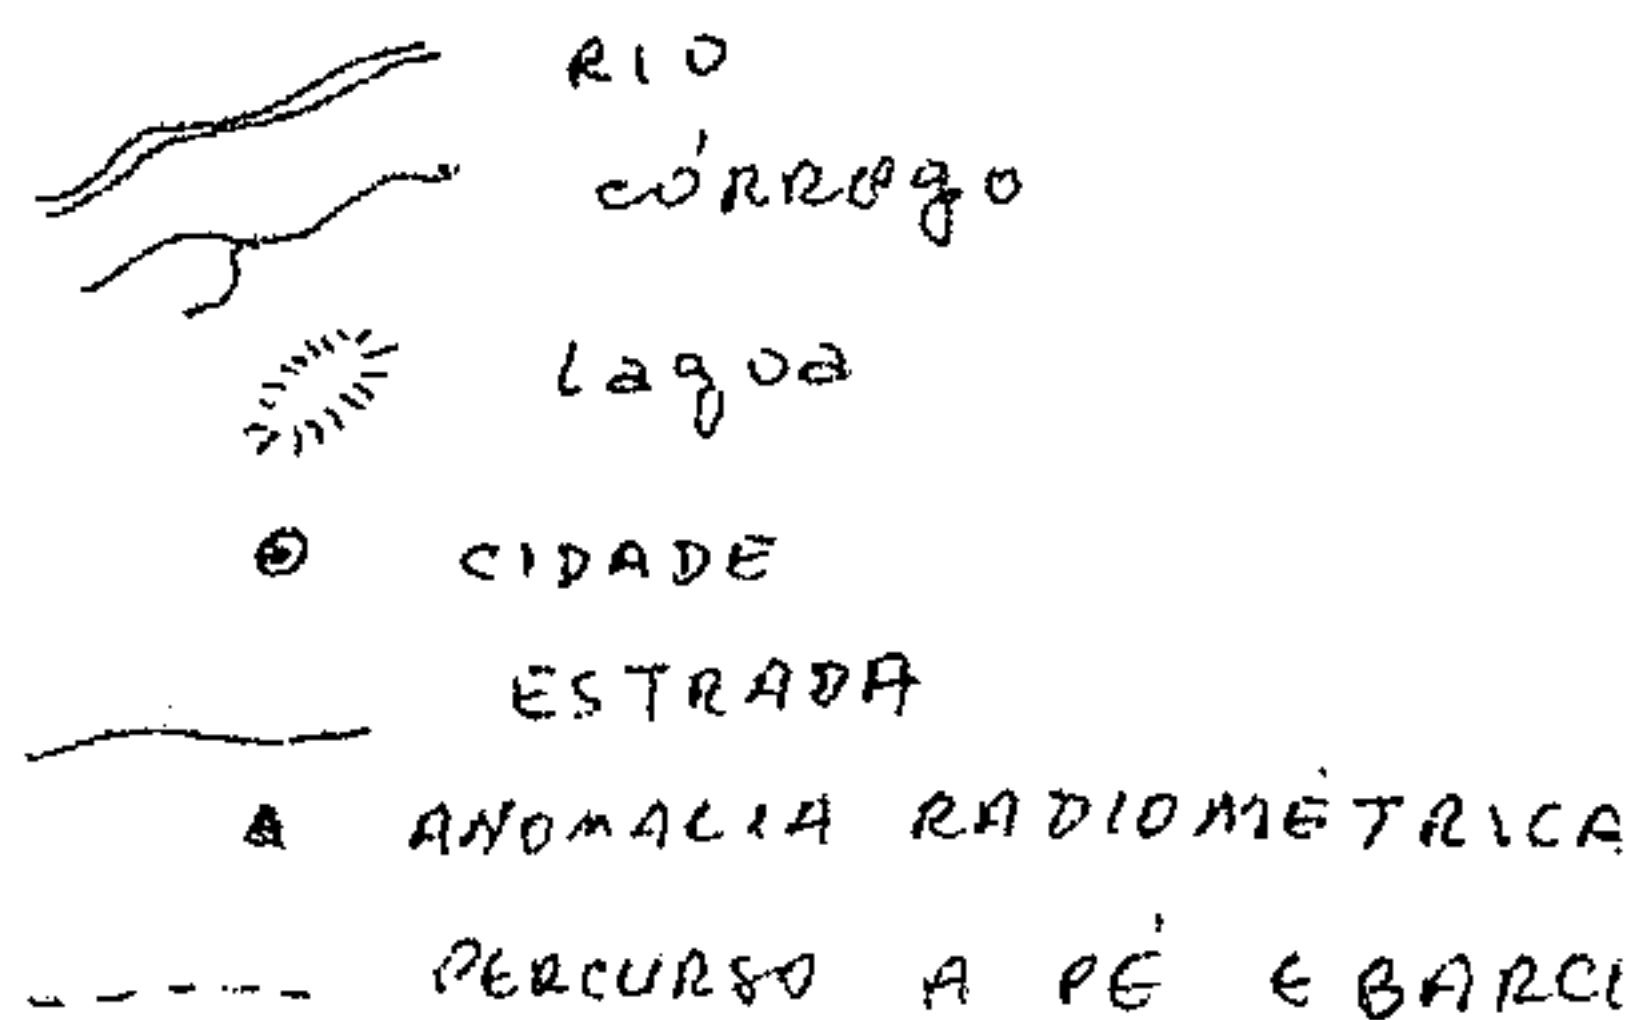 RIO
córrego
lagoa
CIDADE
ESTRADA
ANOMALIA RADIOMÉTRICA
PERCURSO A PÉ E